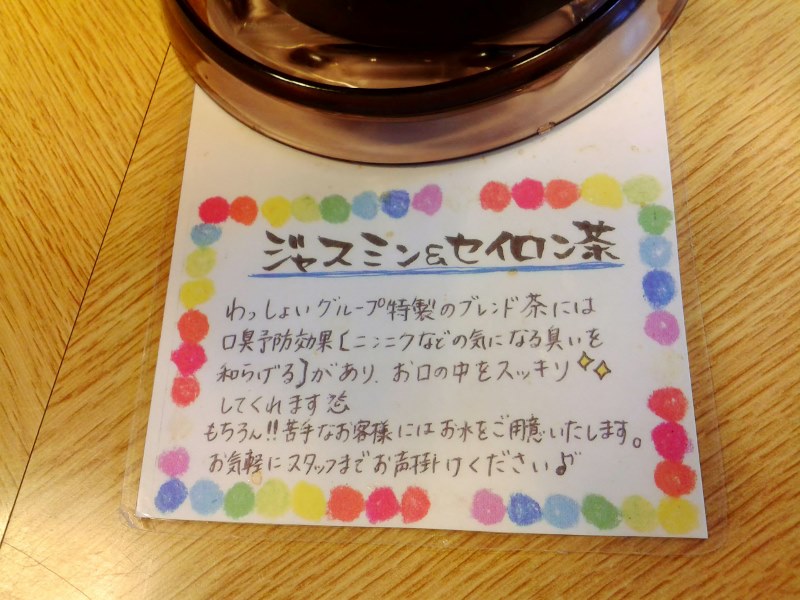 ジャスミン&セイロン茶
わっしょいグループ特製のブレンド茶には
口臭予防効果〔ニンニクなどの気になる臭いを
和らげる〕があり、お口の中をスッキリ
してくれます
もちろん!!苦手なお客様にはお水をご用意いたします。
お気軽にスタッフまでお声掛けください♪